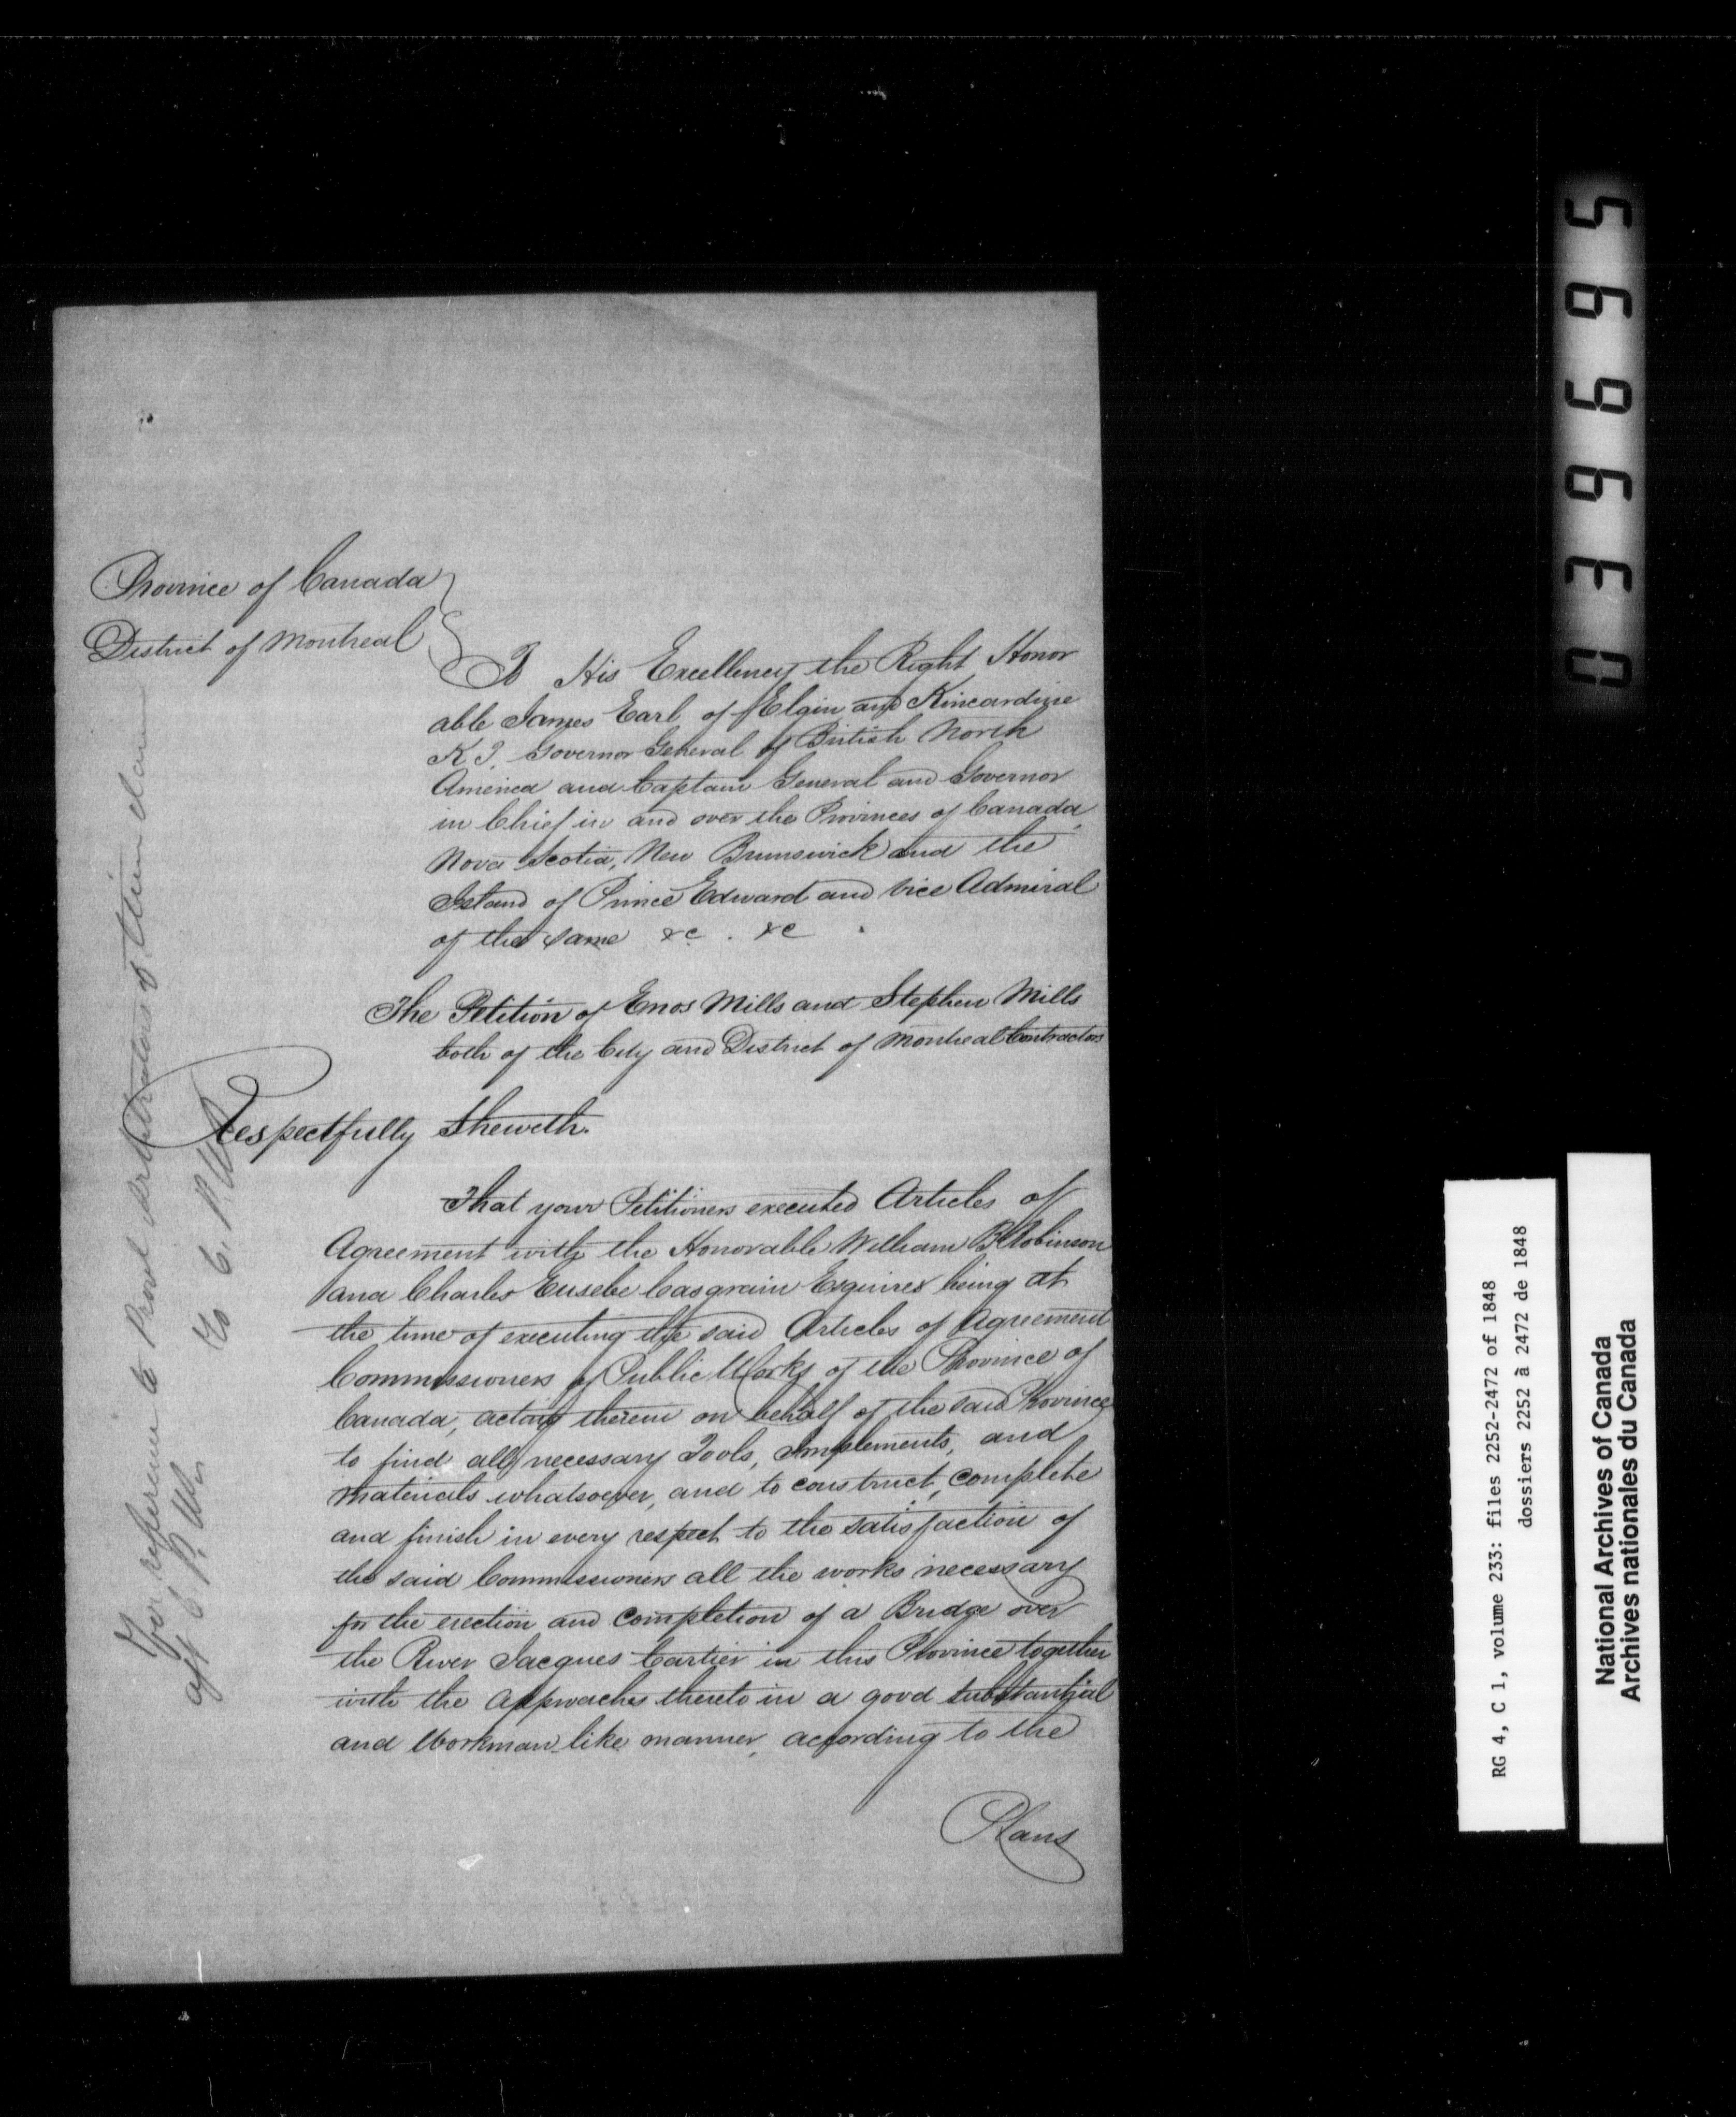 Province of Canada
District of Montreal
To His Excellency the Right Honor
able James Earl of Elgin and Kincardine
K T. Governor General of British North
America and Captain General and Governor
in Chief in and over the Provinces of Canada,
Nova Scotia, New Brunswick and the
Island of Prince Edward and Vice Admiral
of the same &c. &c
The Petition of Enos Mills and Stephen Mills
both of the City and District of Montreal Contractors
Respectfully Sheweth.
That your Petitioners executed Articles of
Agreement with the Honorable William B Robinson
and Charles Eusebe Casgrain Esquires being at
the time of executing the said Articles of Agreement
Commissioners of Public Works of the Province of
Canada, acting therein on behalf of the said Province
to find all necessary Tools, Implements, and
Materials whatsoever, and to construct, complete
and finish in every respect to the satisfaction of
the said Commissioners all the works necessary
for the erection and completion of a Bridge over
the River Jacques Cartier in this Province together
with the Approaches thereto in a good substantial
and Workman like manner, according to the
Plans
For reference to Provl Arbitrators of their claim
To C. P. W.
039695
RG 4, C 1, volume 233: files 2252-2472 of 1848
dossiers 2252 à 2472 de 1848
National Archives of Canada
Archives nationales du Canada